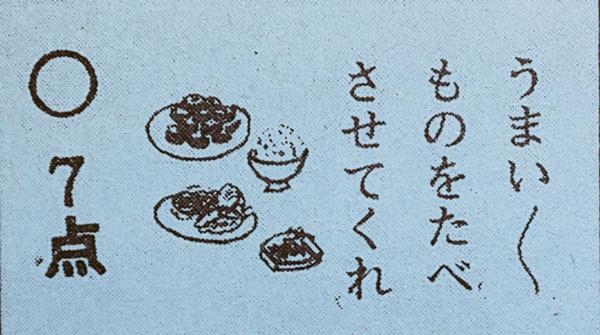 うまい〳〵
ものをたべ
させてくれ
○ 7点